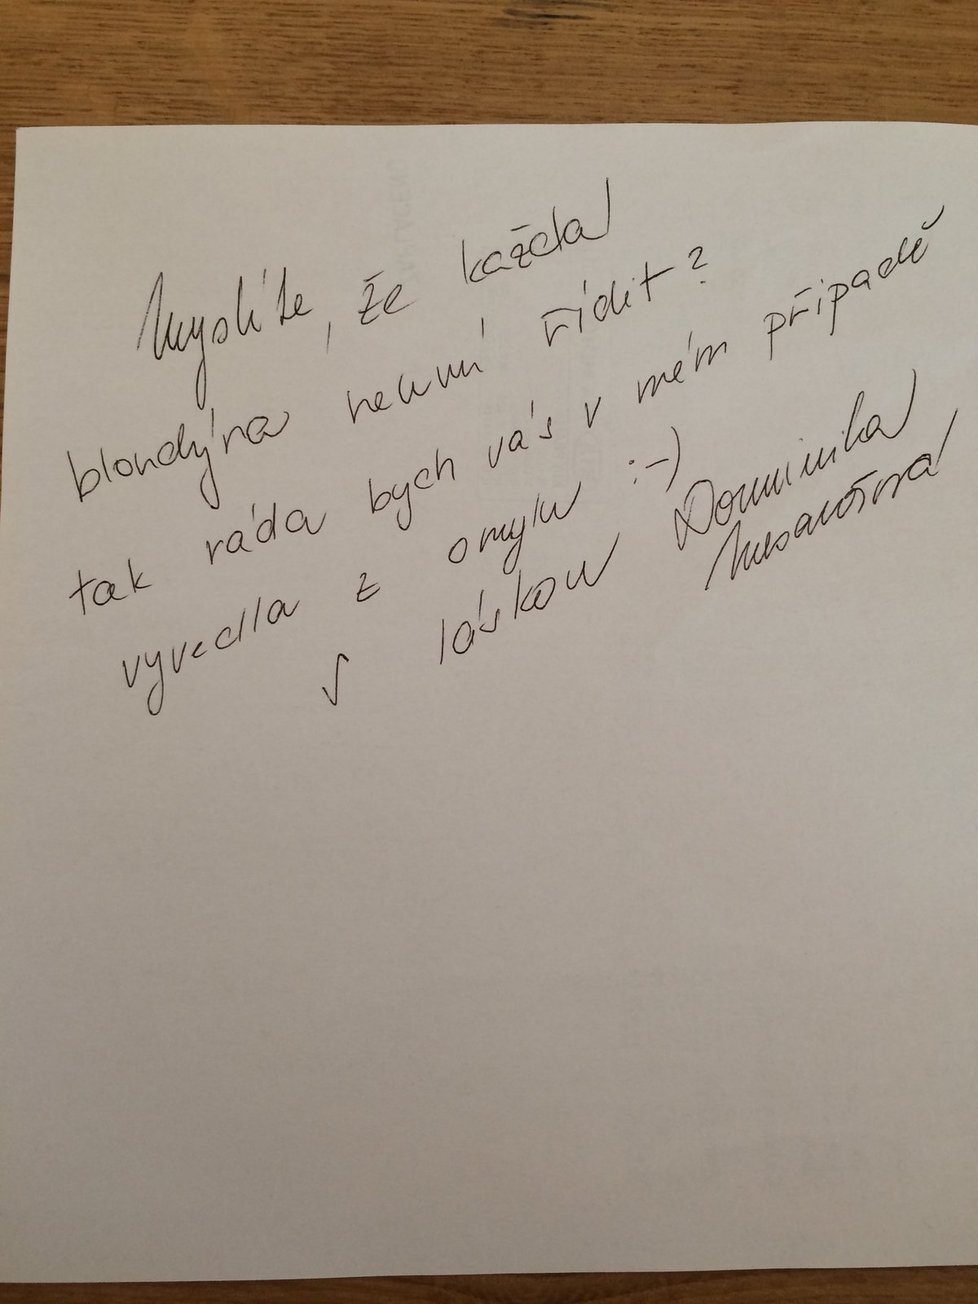 Myslíte, že každá
blondýna neumí řídit?
tak ráda bych vás v mém případě
vyvedla z omylu :-)
S láskou Dominika
Mesarošová